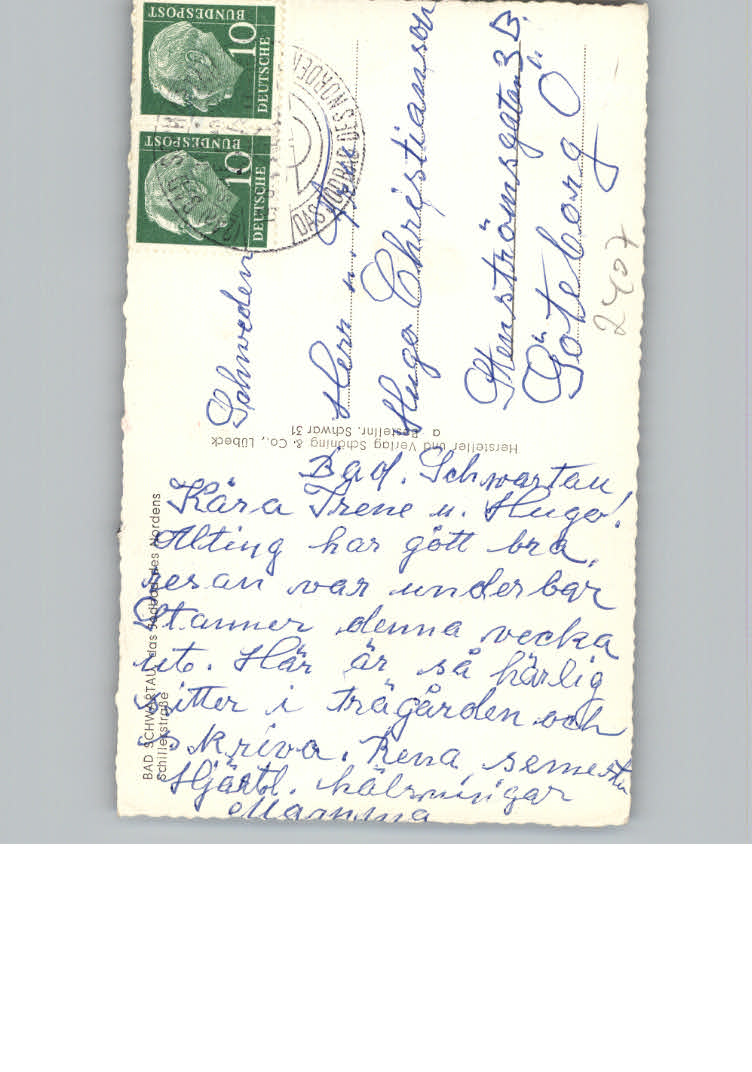 Bad. Schwartau
Kära Irene u. Hugo!
Alting har gött bra,
resan var underbar
Stanner denna vecka
ut. Här är så härlig
sitter i trägården och
skriva. Rena semester
Hjärtl. hälsningar
Mamma
Schweden
Herr u. Frau
Hugo Christianson
Stenströmsgatan 3B.
Göteborg Ö
2407
BAD SCHWARTAU, das Jodbad des Nordens
Schillerstraße
Hersteller und Verlag Schöning & Co., Lübeck
a Bestellnr. Schwar 31
DEUTSCHE
BUNDESPOST
10
DEUTSCHE
BUNDESPOST
10
DAS JODBAD DES NORDENS